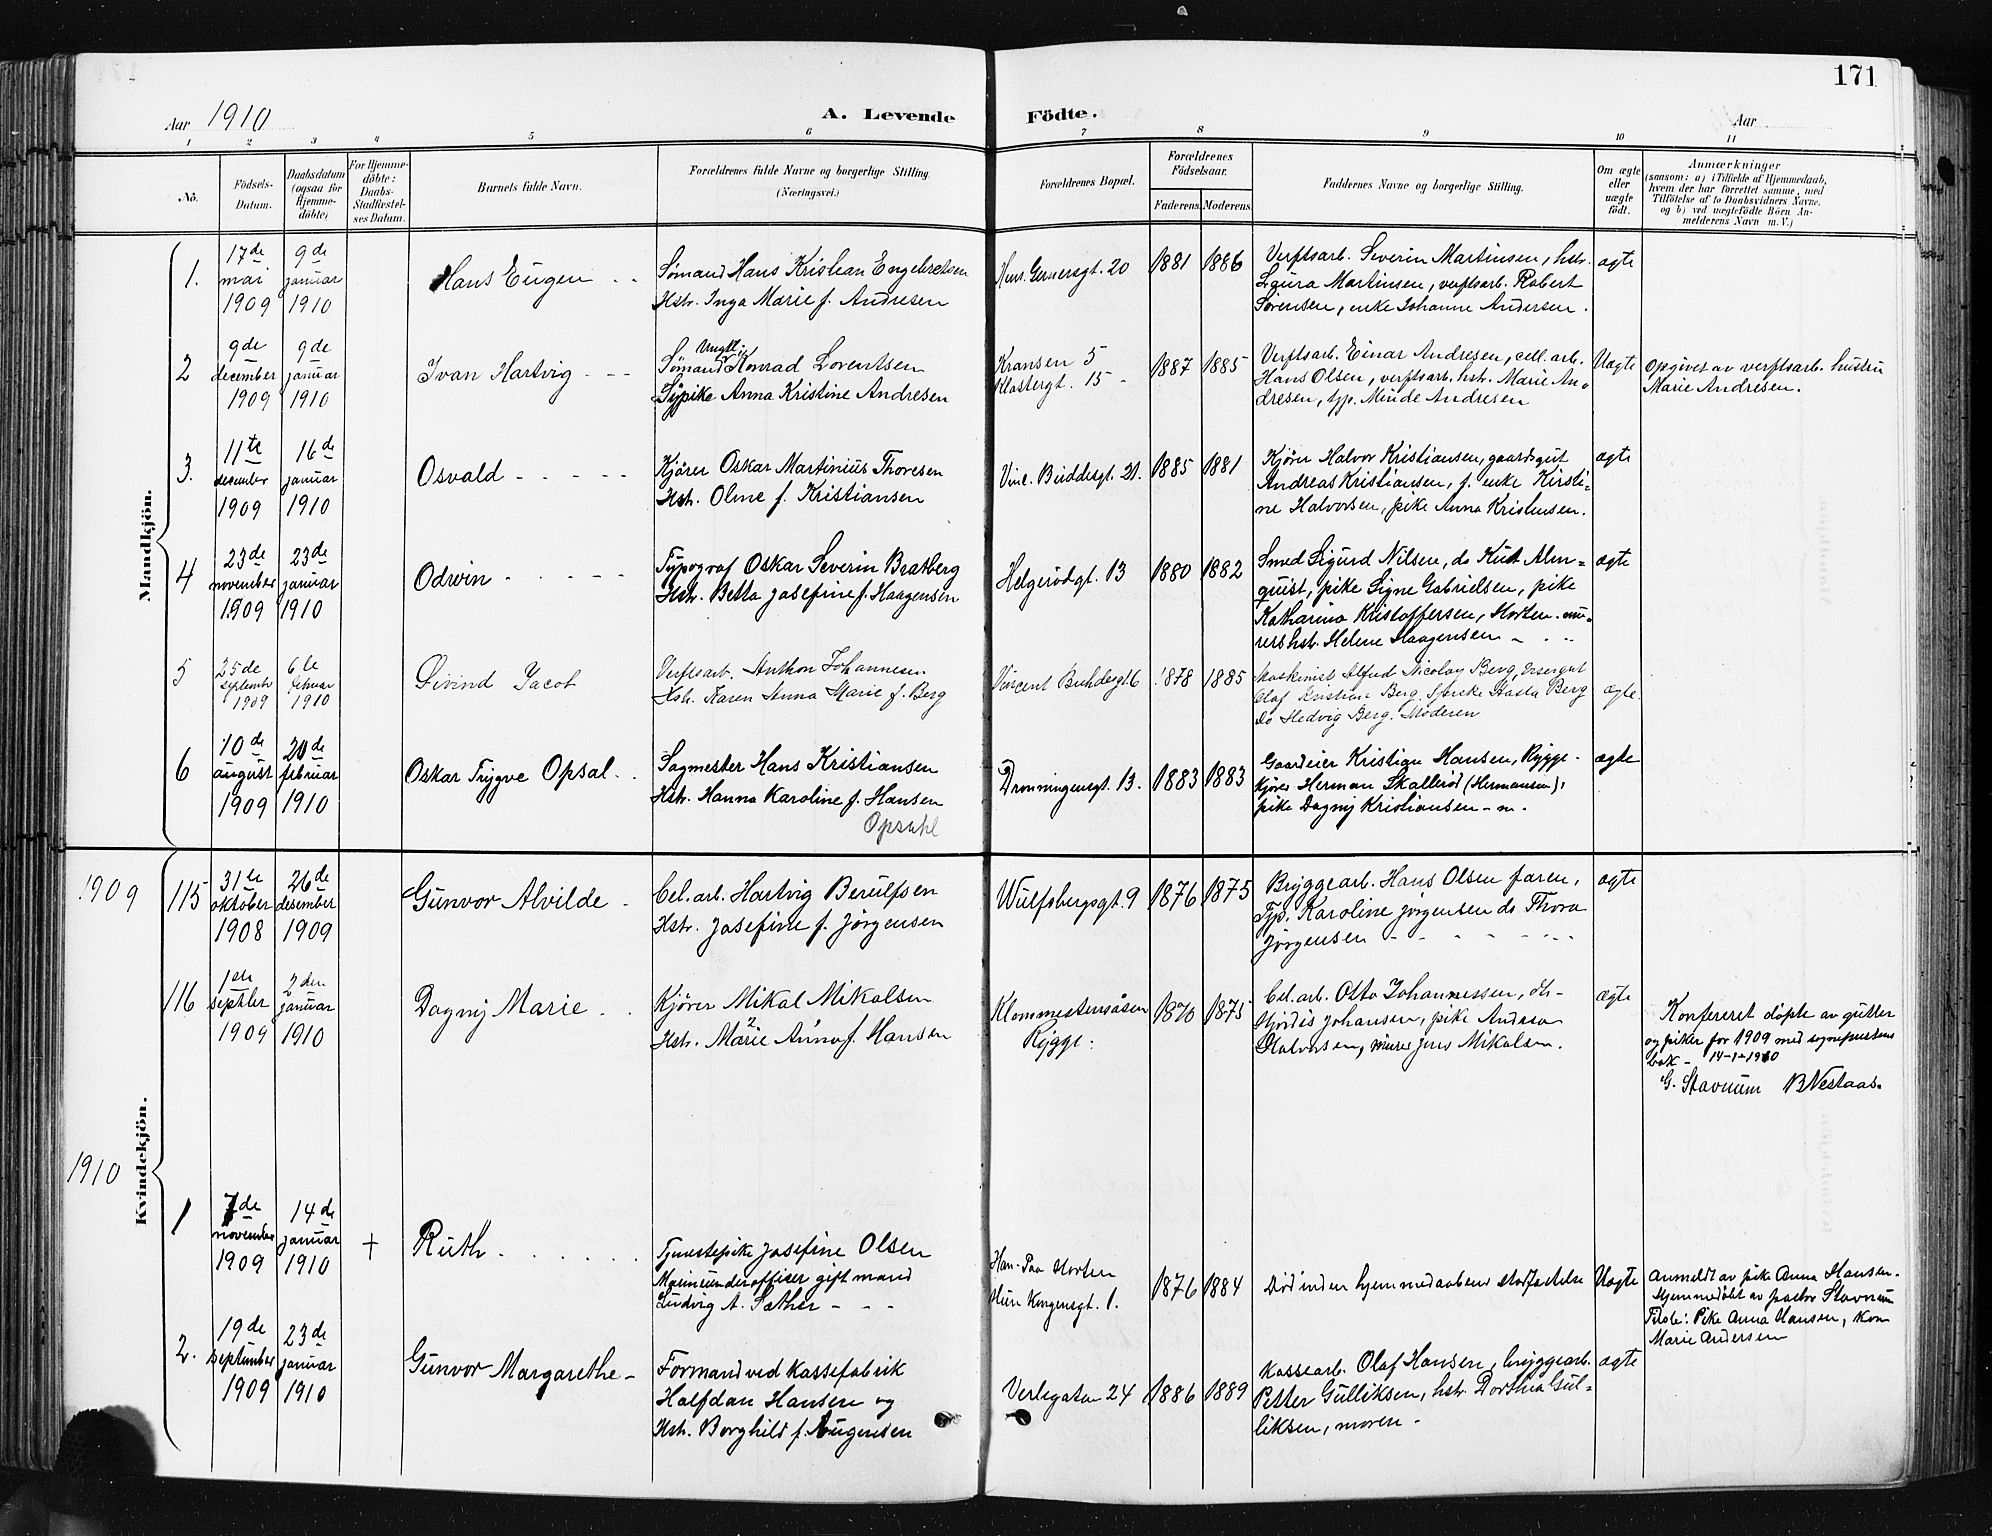 171
Aar 1910
A. Levende
Födte.
Aar
1 2 3 4 5 6 7 8 9 10 11
No.
Födsels-
Datum.
Daabsdatum
(ogsaa for
Hjemme-
döbte)
For Hjemme-
döbte:
Daabs-
Stadfæstel-
ses Datum.
Barnets fulde Navn.
Forældrenes fulde Navne og borgerlige Stilling.
(Næringsvei.)
Forældrenes Bopæl.
Forældrenes
Födselsaar.
Faderens.
Moderens.
Faddernes Navne og borgerlige Stilling.
Om ægte
eller
uægte
födt.
Anmærkninger
(saasom: a) i Tilfælde af Hjemmedaab,
hvem der har forrettet samme, med
Tilföielse af to Daabsvidners Navne.
og b) ved uægtefödte Börn An-
melderens Navn m. V.)
Mandkjön.
1.
17de
mai
1909
9de
januar
1910
Hans Eugen
Sømand Hans Kristian Engebretsen
Hstr. Inga Marie f. Andresen
Gernersgt. 20
1881
1886
Verftsarb. Severin Martinsen, hstr.
Laura Martinsen, verftsarb. Robert
Sørensen, enke Johanne Andersen.
ægte
2
9de
december
1909
9de
januar
1910
Ivan Hartvig
Ungk.
Sømand Konrad Lorentsen
Sypike Anna Kristine Andresen
Kransen 5
Klostergt. 15
1887
1885
Verftsarb. Einar Andresen, cell. arb.
Hans Olsen, verftsarb. hst. Marie An-
dresen, typ. Minde Andresen
Uægte
Opgivet av verftsarb. hustru
Marie Andresen.
3.
11te
desember
1909
16de
januar
1910
Osvald
Kjører Oskar Martinius Thoresen
Hstr. Olme f. Kristiansen
Vinc. Buddesgt. 21.
1885
1881
Kjører Halvor Kristiansen, gaardsgut
Andreas Kristiansen, f. enke Kirsti-
ne Halvorsen, pike Anna Kristensen.
ægte
4
23de
november
1909
23de
januar
1910
Odvin
Typograf Oskar Severin Bratberg
Hstr. Betta Josefine f. Haagensen
Helgerødgt. 13
1880
1882
Smed Sigurd Nilsen, do Kurt Alm-
quist, pike Signe Gabrielsen, pike
Katharina Kristoffersen, Horten. mu-
rers hst. Helene Haagensen
ægte
5
25de
septembr
1909
6te
februar
1910
Øivind Jacob
Verftsarb. Anthon Johannesen
Hstr. Karen Anna Marie f. Berg
Vincent Buddesgt 6
1878
1885
Maskinist Alfred Nicolay Berg, Visergut
Olaf Kristian Berg. Sypike Hasla Berg
Do Hedvig Berg. Moderen
ægte
6
10de
august
1909
20de
februar
1910
Oskar Trygve Opsal
Sagmester Hans Kristiansen
Hstr. Hanna Karoline f. Hansen
Opsahl
Dronningensgt. 13.
1883
1883
Gaardeier Kristian Hansen, Rygge
kjører Herman Skallerød (Hermansen),
pike Dagny Kristiansen - m.
ægte
Kvindekjön.
1909
115
31te
oktober
1908
26de
desember
1909
Gunvor Alvilde
Cel. arb. Hartvig Berulfsen
Hstr. Josefine f. Jørgensen
Wulfsbergsgt. 9
1876
1875
Bryggearb. Hans Olsen faren,
Typ. Karoline Jørgensen do Thora
Jørgensen
ægte
116
1ste
septbr
1909
2den
januar
1910
Dagny Marie
Kjører Mikal Mikalsen
Hstr. Marie Anna f. Hansen
Klommestensåsen
Rygge
1870
1875
Cel. arb. Otto Johannessen,
Hjørdis Johansen, pike Andrea
Halvorsen, murer Jens Mikalsen.
ægte
Konfereret døpte av gutter
og piker for 1909 med sogneprestens
bok - 14-1-1910
G. Stavnum B Nestaas.
1910
1
7de
november
1909
14de
januar
1910
+
Ruth
Tjenestepike Josefine Olsen
Marineunderofficer gift mand
Ludvig A. Sæther
Han - Paa Horten
Hun Kongensgt. 1.
1876
1884
Død inden hjemmedaabens stadfæstelse
Uægte
Anmeldt av pike Anna Hansen.
Hjemmedøbt av pastor Stavnum
Tilste: Pike Anna Hansen, kone
Marie Andersen
2.
19de
september
1909
23de
januar
1910
Gunvor Margarethe
Formand ved Kassefabrik
Halfdan Hansen og
Hstr. Borghild f. Eugensen
Verlegaten 24
1886
1889
Kassearb. Olaf Hansen, bryggearb.
Petter Gulliksen, hstr. Dorthea Gul-
liksen, moren
ægte